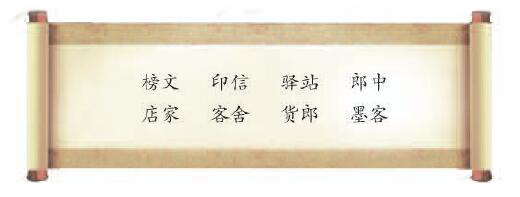 榜文 印信 驿站 郎中
店家 客舍 货郎 墨客